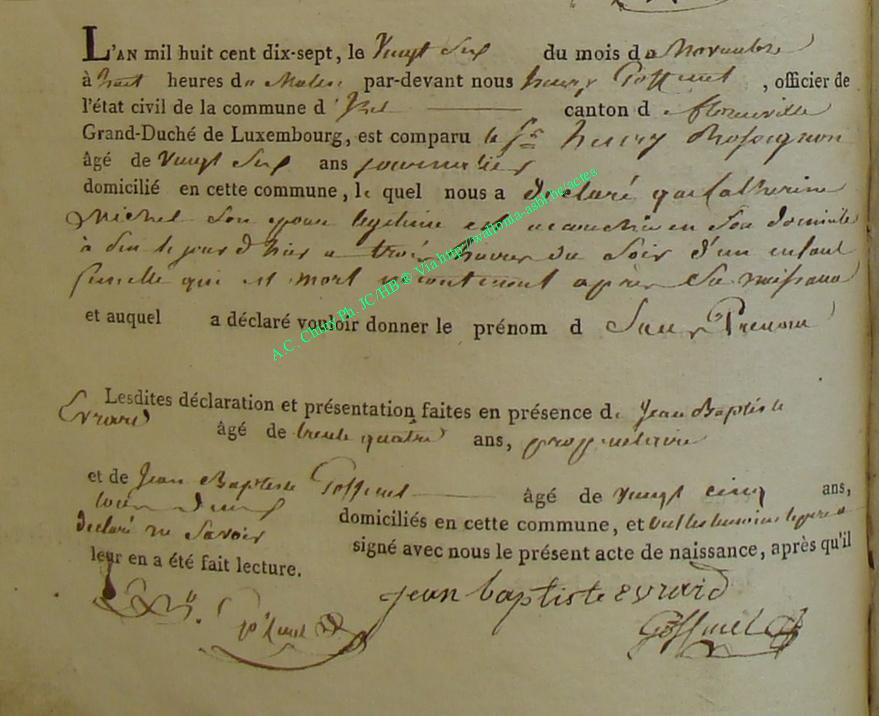 L'AN mil huit cent dix-sept, le Vingt Six du mois de Novembre
à huit heures du Matin par-devant nous henry Goffinet, officier de
l'état civil de la commune d' Izel canton d e florenville
Grand-Duché de Luxembourg, est comparu le Sr henry Rossignon
âgé de Vingt Six ans journalier
domicilié en cette commune, le quel nous a déclaré que Catherine
Michel Son epouse legitime est accouchée en Son domicile
à Six le jour d'hier a trois heures du Soir d'un enfant
femelle qui est mort incontinent après Sa naissance
et auquel a déclaré vouloir donner le prénom d Sans Prenom
Lesdites déclaration et présentation faites en présence de Jean Baptiste
Evrard âgé de trente quatre ans, proprietaire
et de Jean Baptiste Goffinet âgé de Vingt cinq ans,
domiciliés en cette commune, et ont les temoins le pere a
declaré ne Savoir signé avec nous le présent acte de naissance, après qu'il
leur en a été fait lecture.
jean baptiste evrard
goffinet
Goffinet
A.C. Chiny Ph. JC/HB ® Via http://walloniа-asbl.be/actes